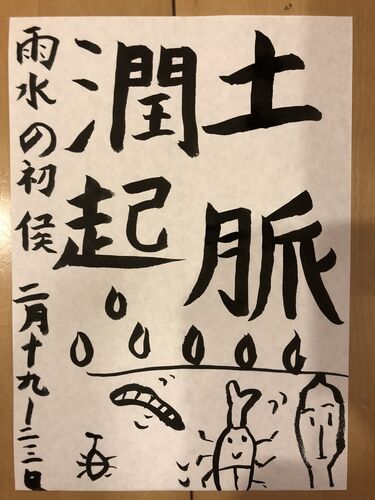 土脈
潤起
雨水の初侯 二月十九ー二三日